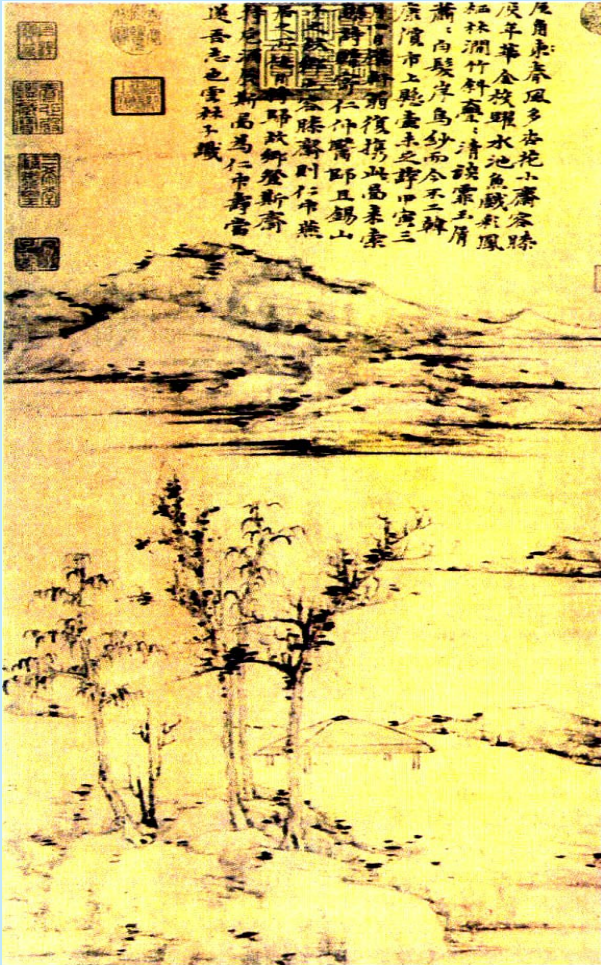 屋角東春風多杏花小齋容膝
度年華金梭躍水池魚戲彩鳳
栖林澗竹斜亹〻清談霏玉屑
蕭〻白髮岸烏紗而今不二韓
康價市上懸壺未足誇甲寅三
月四日檗軒翁復攜此圖來索
謬詩贈寄仁仲醫師且錫山
予之故鄉也容膝齋則仁仲燕
居之所他日將歸故鄉登斯齋
持卮酒展斯圖為仁仲壽當
遂吾志也雲林子識